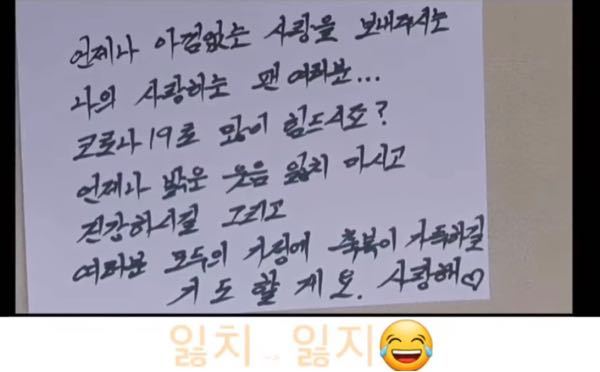 언제나 아낌없는 사랑을 보내주시는
나의 사랑하는 팬 여러분...
코로나19로 많이 힘드시죠?
언제나 밝은 웃음 잃치 마시고
건강하시길 그리고
여러분 모두의 가정에 축복이 가득하길
기도 할게요. 사랑해♡
잃치 → 잃지😂